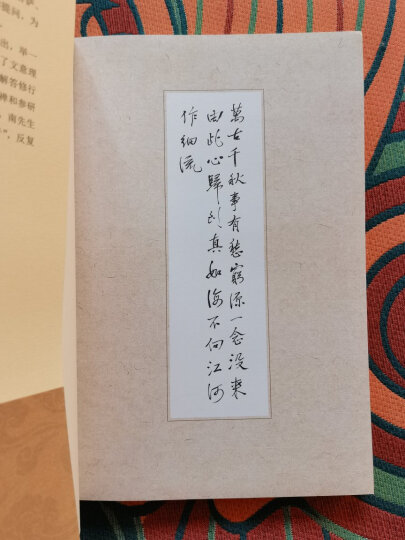 提问，为
出，举一
了文意理
解答修行
禅和参研
，南先生
”，反复
萬古千秋事有愁窮源一念没來
由此心歸到真如海不向江河
作細流